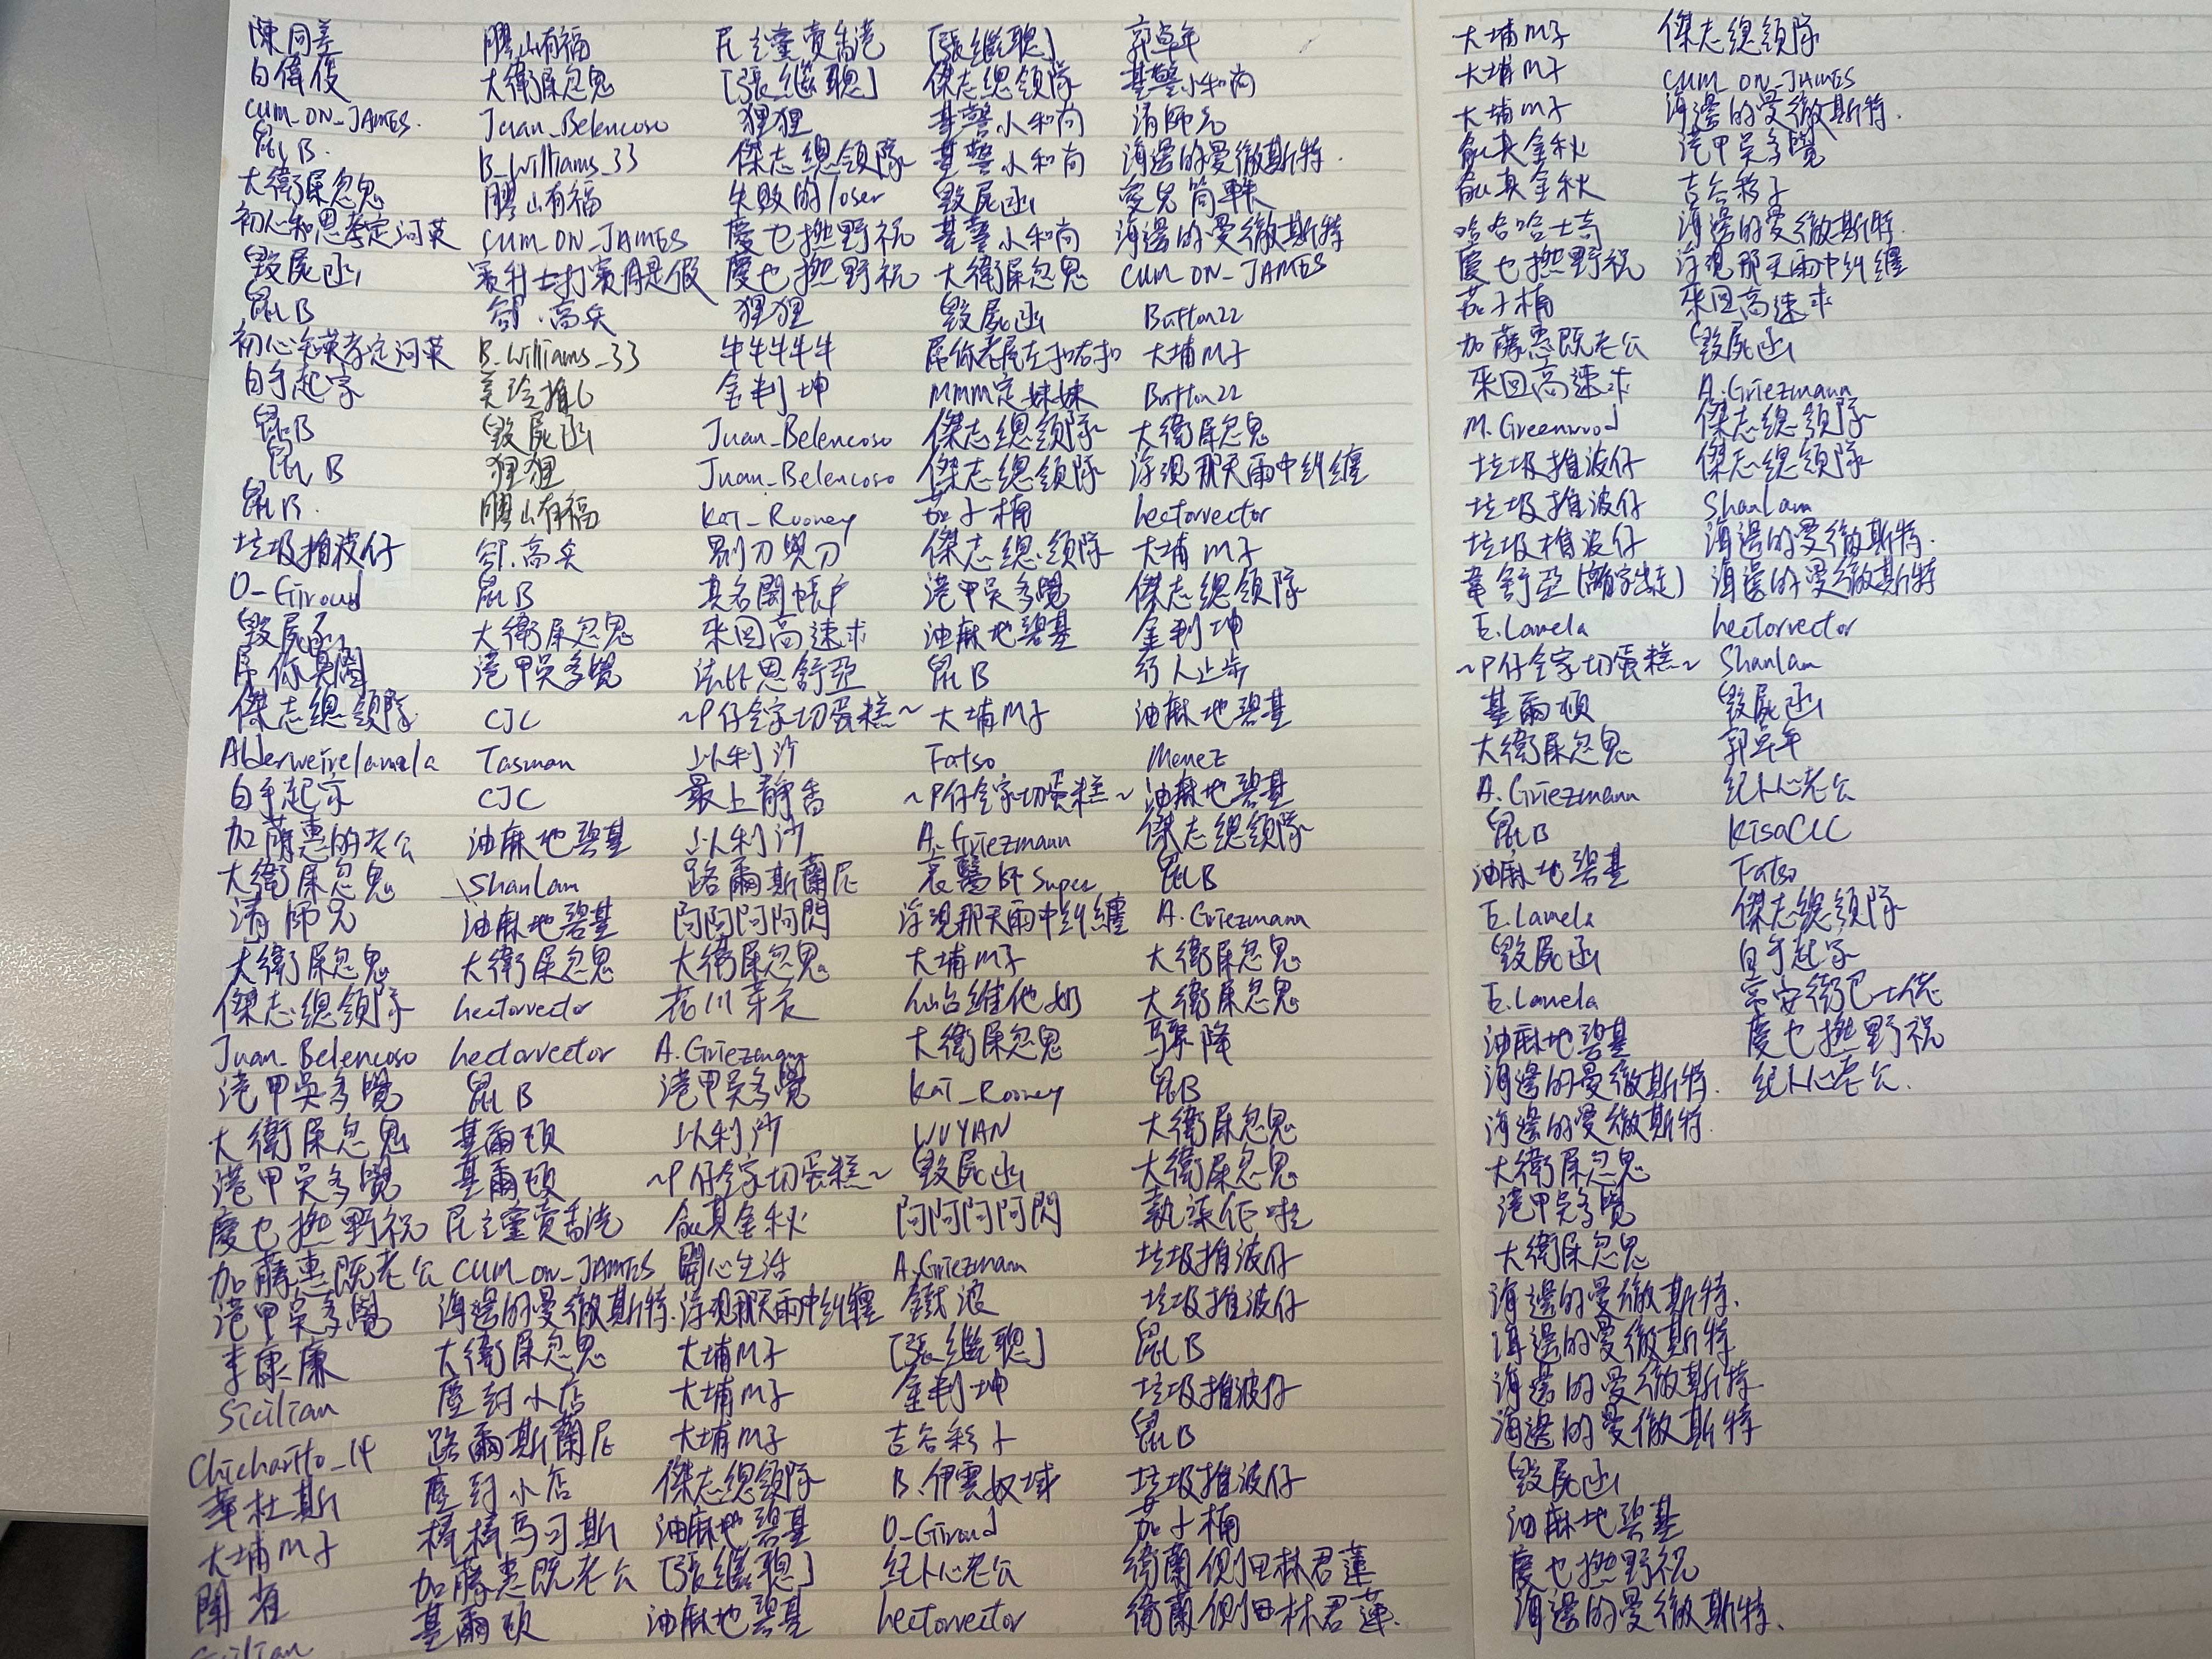 陳同差
白偉俊
CUM_ON_JAMES.
鼠B.
大衛屎忽鬼
毀屍函
鼠B
白手起家
鼠B
鼠B
鼠B.
垃圾推波仔
O_Giroud
毀屍函
傑志總領隊
Alderweirelamela
白手起家
加藤惠的老公
大衛屎忽鬼
清師兄
大衛屎忽鬼
傑志總領隊
Juan_Belencoso
港甲吳多覺
大衛屎忽鬼
港甲吳多覺
慶乜撚野祝
加藤惠既老公
港甲吳多覺
李康廉
Sicilian
Chicharito_14
華杜斯
大埔M子
闈省
Sicilian
膠山有福
大衛屎忽鬼
Juan_Belencoso
B_Williams_33
膠山有福
CUM_ON_JAMES
賓利士打賓周是假
郤.高奂
B_Williams_33
毀屍函
狸狸
膠山有福
郤.高奂
鼠B
大衛屎忽鬼
港甲吳多覺
CJC
Tasman
CJC
油麻地碧基
Shanlam
油麻地碧基
大衛屎忽鬼
hectorvector
hectorvector
鼠B
基爾頓
基爾頓
民主黨賣香港
CUM_ON_JAMES
海邊的曼徹斯特.
大衛屎忽鬼
塵封小店
路爾斯蘭尼
塵封小店
棒棒馬可斯
加藤惠既老公
基爾頓
民主黨賣香港
[張繼聰]
狸狸
傑志總領隊
失敗的loser
慶乜撚野祝
慶乜撚野祝
狸狸
牛牛牛牛牛
金判坤
Juan_Belencoso
Juan_Belencoso
Kai_Rooney
剔刀與刀
真名開帳戶
來回高速球
法比恩舒亞
~P仔全家切蛋糕~
以利沙
最上靜香
以利沙
路爾斯蘭尼
阿阿阿阿閃
大衛屎忽鬼
花川芽衣
A.Griezmann
港甲吳多覺
以利沙
~P仔全家切蛋糕~
俞真金秋
開心生活
浮現那天雨中糾纏
大埔M子
大埔M子
大埔M子
傑志總領隊
油麻地碧基
[張繼聰]
油麻地碧基
[張繼聰]
傑志總領隊
基警小和尚
基警小和尚
毀屍函
基警小和尚
大衛屎忽鬼
毀屍函
屌你老尾左扣右扣
MMM定妹妹
傑志總領隊
傑志總領隊
茄子桶
傑志總領隊
港甲吳多覺
油麻地碧基
鼠B
大埔M子
Fatso
~P仔全家切蛋糕~
A.Griezmann
哀醫師Super
浮現那天雨中糾纏
大埔M子
仙台維他奶
大衛屎忽鬼
Kai_Rooney
WUYAN
毀屍函
阿阿阿阿閃
A.Griezmann
鐵浪
[張繼聰]
金判坤
吉谷彩子
B.伊雲奴域
O_Giroud
紀卜心老公
hectorvector
郭卓年
基警小和尚
清師兄
海邊的曼徹斯特.
愛兒筒軚
海邊的曼徹斯特
CUM_ON_JAMES
Button22
大埔M子
Button22
大衛屎忽鬼
浮現那天雨中糾纏
hectorvector
大埔M子
傑志總領隊
金判坤
行人止步
油麻地碧基
Menez
油麻地碧基
傑志總領隊
鼠B
A.Griezmann
大衛屎忽鬼
大衛屎忽鬼
驟降
鼠B
大衛屎忽鬼
大衛屎忽鬼
執柒佢啦
垃圾推波仔
垃圾推波仔
鼠B
垃圾推波仔
鼠B
垃圾推波仔
茄子桶
衛蘭側田林君蓮
衛蘭側田林君蓮.
大埔M子
大埔M子
大埔M子
俞真金秋
俞真金秋
哈哈哈士奇
慶乜撚野祝
茄子桶
加藤惠既老公
來回高速球
M.Greenwood
垃圾推波仔
垃圾推波仔
垃圾推波仔
韋舒亞(離家出走)
E.Lamela
~P仔全家切蛋糕~
基爾頓
大衛屎忽鬼
A.Griezmann
鼠B
油麻地碧基
E.Lamela
毀屍函
E.Lamela
油麻地碧基
海邊的曼徹斯特.
海邊的曼徹斯特.
大衛屎忽鬼
港甲吳多覺
大衛屎忽鬼
海邊的曼徹斯特.
海邊的曼徹斯特
海邊的曼徹斯特
海邊的曼徹斯特
毀屍函
油麻地碧基
慶乜撚野祝
海邊的曼徹斯特.
傑志總領隊
CUM_ON_JAMES
海邊的曼徹斯特.
港甲吳多覺
吉谷彩子
海邊的曼徹斯特.
浮現那天雨中糾纏
來回高速球
毀屍函
A.Griezmann
傑志總領隊
傑志總領隊
Shanlam
海邊的曼徹斯特.
海邊的曼徹斯特
hectorvector
Shanlam
毀屍函
郭卓年
紀卜心老公
KisaCLC
Fatso
傑志總領隊
白手起家
常安街巴士佬
慶乜撚野祝
紀卜心老公.